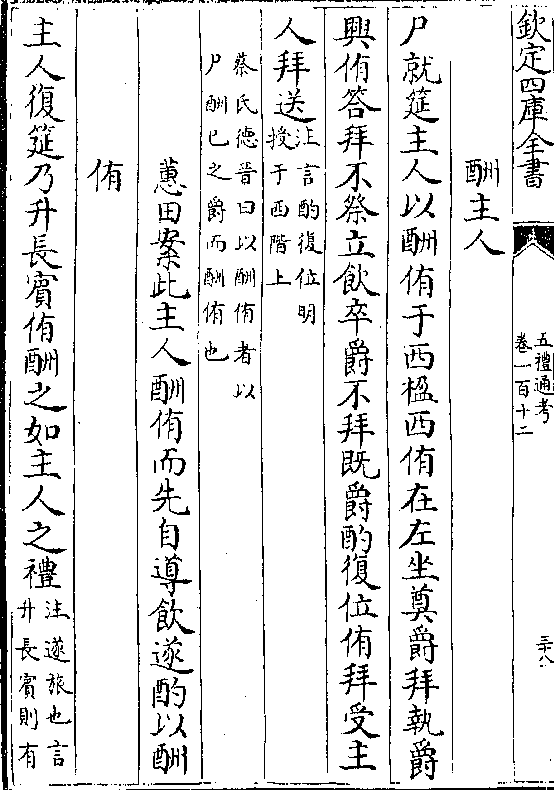 欽定四庫全書
五禮通考
卷一百十二
三十八
酬主人
尸就筵主人以酬侑于西楹西侑在左坐奠爵拜執爵
興侑答拜不祭立飲卒爵不拜既爵酌復位侑拜受主
人拜送
注言酌復位明
授于西階上
蔡氏德晉曰以酬侑者以
尸酬已之爵而酬侑也
蕙田案此主人酬侑而先自導飲遂酌以酬
侑
主人復筵乃升長賓侑酬之如主人之禮
注遂旅也言
升長賓則有